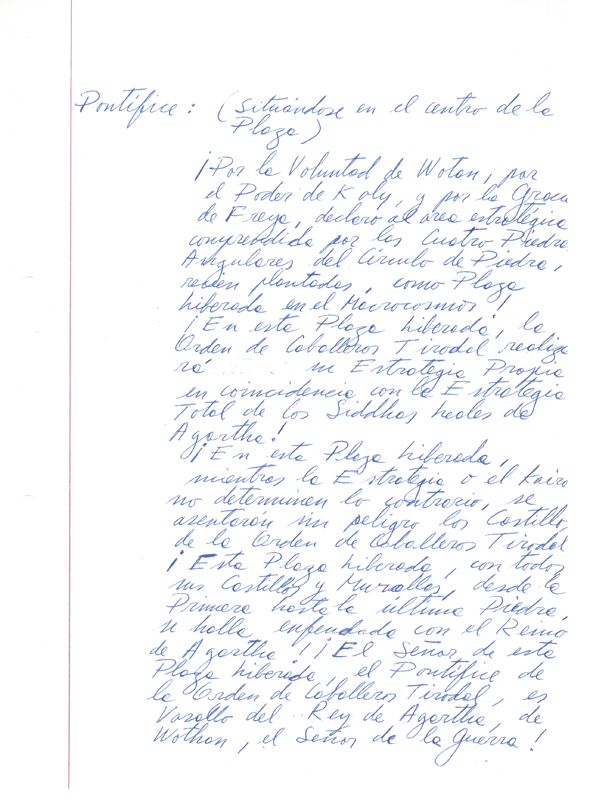 Pontífice: (Situándose en el centro de la
Plaza)
¡Por la Voluntad de Wotan, por
el Poder de Kaly, y por la Gracia
de Freya, declaro al área estratégica
comprendida por las Cuatro Piedras
Angulares del Círculo de Piedra,
recién plantadas, como Plaza
liberada en el Macrocosmos!
¡En esta Plaza liberada, la
Orden de Caballeros Tirodal realiza
rá su Estrategia Propia
en coincidencia con la Estrategia
Total de los Siddhas leales de
Agartha!
¡En esta Plaza liberada,
mientras la Estrategia o el Kairos
no determinen lo contrario, se
asentarán sin peligro los Castillos
de la Orden de Caballeros Tirodal
¡Esta Plaza liberada, con todos
sus Castillos y Murallas, desde la
Primera hasta la última Piedra,
se halla enfeudada con el Reino
de Agartha! ¡El Señor de esta
Plaza liberada, el Pontífice de
la Orden de Caballeros Tirodal, es
Vasallo del Rey de Agartha, de
Wothan, el Señor de la Guerra!